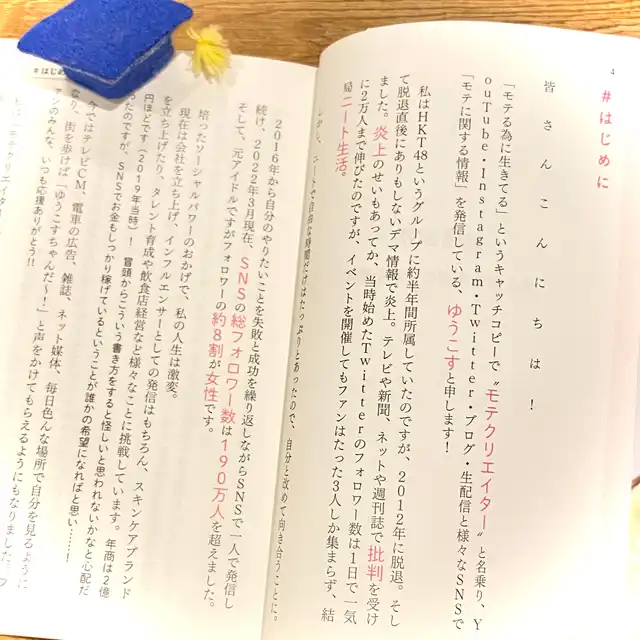 4
#はじめに
皆さんこんにちは！
「モテる為に生きてる」というキャッチコピーで〝モテクリエイター〟と名乗り、Y
ouTube・Instagram・Twitter・ブログ・生配信と様々なSNSで
「モテに関する情報」を発信している、ゆうこすと申します！
私はHKT48というグループに約半年間所属していたのですが、2012年に脱退。そし
て脱退直後にありもしないデマ情報で炎上。テレビや新聞、ネットや週刊誌で批判を受け
ました。炎上のせいもあってか、当時始めたTwitterのフォロワー数は1日で一気
に2万人まで伸びたのですが、イベントを開催してもファンはたった3人しか集まらず、結
局ニート生活。
しかし、ニートで自由な時間だけはたっぷりとあったので、自分と改めて向き合うことに。
#はじめ
2016年から自分のやりたいことを失敗と成功を繰り返しながらSNSで一人で発信し
続け、2022年3月現在、SNSの総フォロワー数は190万人を超えました。
そして、元アイドルですがフォロワーの約8割が女性です。
培ったソーシャルパワーのおかげで、私の人生は激変。
現在は会社を立ち上げ、インフルエンサーとしての発信はもちろん、スキンケアブランド
を立ち上げたり、タレント育成や飲食店経営など様々なことに挑戦しています。年商は2億
円ほどです（2019年当時）！ 冒頭からこういう書き方をすると怪しいと思われないかなと心配だ
ったのですが、SNSでお金もしっかり稼げているということが誰かの希望になればと思い……！
今ではテレビCM、電車の広告、雑誌、ネット媒体、毎日色んな場所で自分を見るように
なり、街を歩けば「ゆうこすちゃんだ～！」と声をかけてもらえるようにもなりました。フ
ァンのみんな、いつも応援ありがとう!!